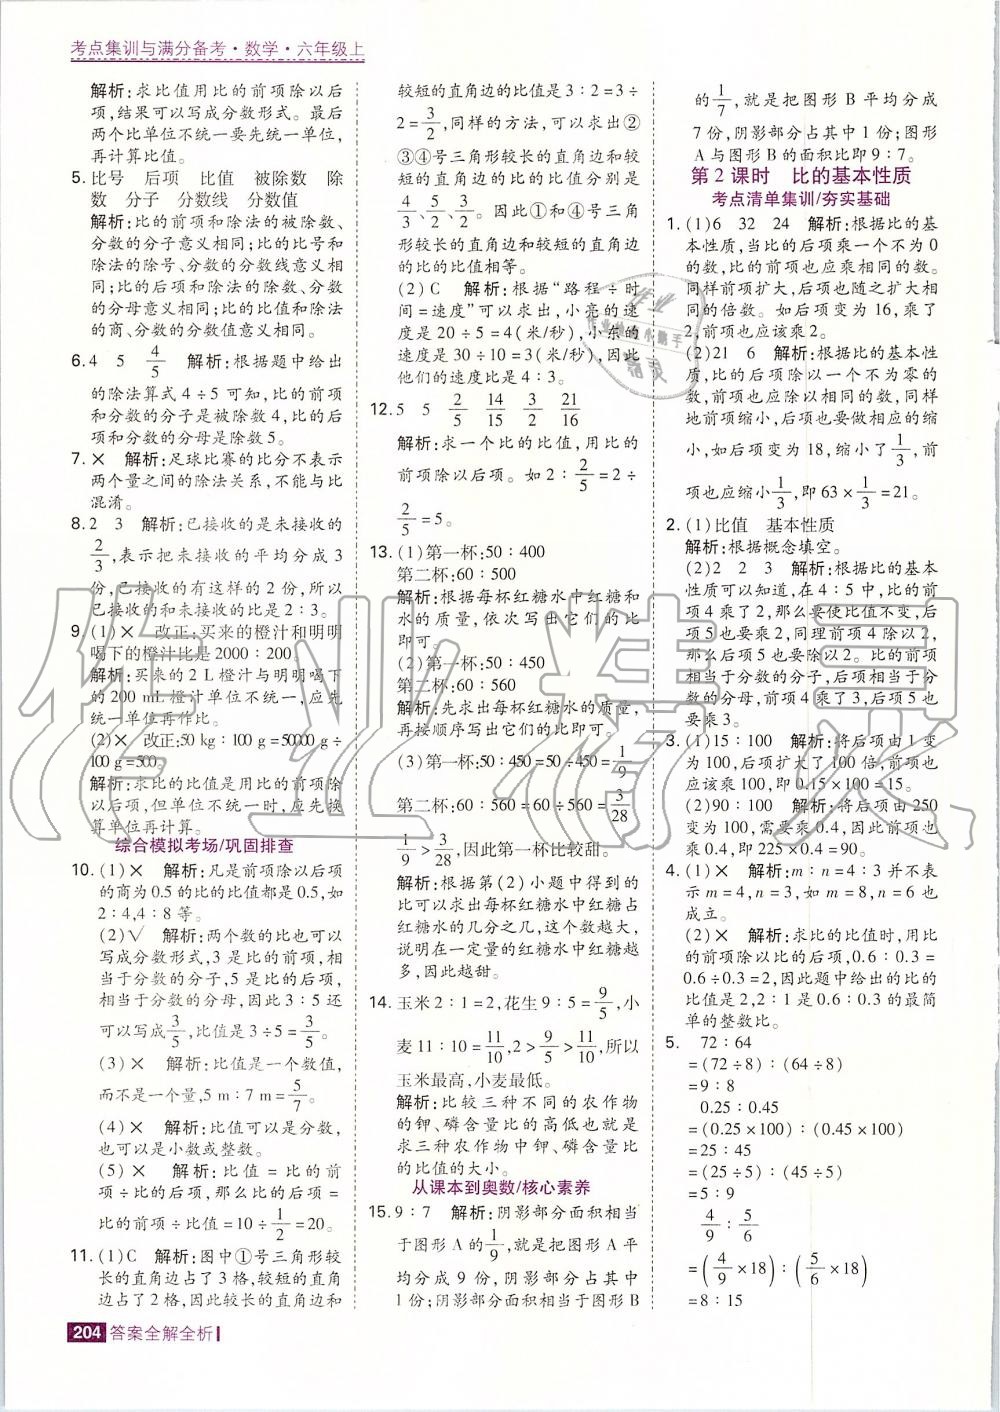 考点集训与满分备考·数学·六年级上
解析:求比值用比的前项除以后
项,结果可以写成分数形式。最后
两个比单位不统一要先统一单位,
再计算比值。
5.比号 后项 比值 被除数 除
数 分子 分数线 分数值
解析:比的前项和除法的被除数、
分数的分子意义相同;比的比号和
除法的除号、分数的分数线意义相
同;比的后项和除法的除数、分数
的分母意义相同;比的比值和除法
的商、分数的分数值意义相同。
6.4 5 4/5 解析:根据题中给出
的除法算式 4÷5 可知,比的前项
和分数的分子是被除数 4,比的后
项和分数的分母是除数 5。
7.× 解析:足球比赛的比分不表示
两个量之间的除法关系,不能与比
混淆。
8.2 3 解析:已接收的是未接收的
2/3,表示把未接收的平均分成 3
份,已接收的有这样的 2 份,所以
已接收的和未接收的比是 2∶3。
9.(1)× 改正:买来的橙汁和明明
喝下的橙汁比是 2000∶200
解析:买来的 2 L 橙汁与明明喝下
的 200 mL 橙汁单位不统一,应先
统一单位再作比。
(2)× 改正:50 kg∶100 g=50000 g÷
100 g=500。
解析:求比的比值是用比的前项除
以后项,但单位不统一时,应先换
算单位再计算。
综合模拟考场/巩固排查
10.(1)× 解析:凡是前项除以后项
的商为0.5的比的比值都是0.5,如
2∶4,4∶8等。
(2)√ 解析:两个数的比也可以
写成分数形式,3 是比的前项,相
当于分数的分子,5 是比的后项,
相当于分数的分母,因此 3∶5 还
可以写成3/5,比值是 3÷5=3/5。
(3)× 解析:比值是一个数值,
而不是一个量,5 m∶7 m=5/7。
(4)× 解析:比值可以是分数,
也可以是小数或整数。
(5)× 解析:比值=比的前
项÷比的后项,那么比的后项=
比的前项÷比值=10÷1/2=20。
11.(1)C 解析:图中①号三角形较
长的直角边占了 3 格,较短的直角
边占了 2 格,因此较长的直角边和
较短的直角边的比值是 3∶2=3÷
2=3/2,同样的方法,可以求出②
③④号三角形较长的直角边和较
短的直角边的比的比值分别是
4/3、5/2、3/2。因此①和④号三角
形较长的直角边和较短的直角边
的比的比值相等。
(2)C 解析:根据“路程÷时
间=速度”可以求出,小亮的速
度是 20÷5=4(米/秒),小东的
速度是 30÷10=3(米/秒),因此
他们的速度比是 4∶3。
12.5 5 2/5 14/15 3/2 21/16
解析:求一个比的比值,用比的
前项除以后项。如 2∶2/5=2÷
2/5=5。
13.(1)第一杯:50∶400
第二杯:60∶500
解析:根据每杯红糖水中红糖和
水的质量,依次写出它们的比
即可。
(2)第一杯:50∶450
第二杯:60∶560
解析:先求出每杯红糖水的质量,
再按顺序写出它们的比即可。
(3)第一杯:50∶450=50÷450=1/9
第二杯:60∶560=60÷560=3/28
1/9>3/28,因此第一杯比较甜。
解析:根据第(2)小题中得到的
比可以求出每杯红糖水中红糖占
红糖水的几分之几,这个数越大,
说明在一定量的红糖水中红糖越
多,因此越甜。
14.玉米 2∶1=2,花生 9∶5=9/5,小
麦 11∶10=11/10,2>9/5>11/10,所以
玉米最高,小麦最低。
解析:比较三种不同的农作物
的钾、磷含量比的高低也就是
求三种农作物中钾、磷含量比
的比值的大小。
从课本到奥数/核心素养
15.9∶7 解析:阴影部分面积相当
于图形 A 的1/9,就是把图形 A 平
均分成 9 份,阴影部分占其中
1份;阴影部分面积相当于图形 B
的1/7,就是把图形 B 平均分成
7份,阴影部分占其中 1 份;图形
A 与图形 B 的面积比即 9∶7。
第 2 课时 比的基本性质
考点清单集训/夯实基础
1.(1)6 32 24 解析:根据比的基
本性质,当比的后项乘一个不为 0
的数,比的前项也应乘相同的数。
同样前项扩大,后项也随之扩大相
同的倍数。如后项变为 16,乘了
2,前项也应该乘 2。
(2)21 6 解析:根据比的基本性
质,比的后项除以一个不为零的
数,前项也应除以相同的数,同样
地前项缩小,后项也要做相应的缩
小,如后项变为 18,缩小了1/3,前
项也应缩小1/3,即 63×1/3=21。
2.(1)比值 基本性质
解析:根据概念填空。
(2)2 2 3 解析:根据比的基本
性质可以知道,在 4∶5 中,比的前
项 4 乘了 2,那么要使比值不变,后
项 5 也要乘 2,同理前项 4 除以 2,
那么后项 5 也要除以 2。比的前项
相当于分数的分子,后项相当于分
数的分母,前项 4 乘了 3,后项 5 也
要乘 3。
3.(1)15∶100 解析:将后项由 1 变
为 100,后项扩大了 100 倍,前项也
应该乘 100,即 0.15×100=15。
(2)90∶100 解析:将后项由 250
变为 100,需要乘 0.4,因此前项也
应乘 0.4,即 225×0.4=90。
4.(1)× 解析:m∶n=4∶3 并不表
示 m=4,n=3,如 m=8,n=6 也
成立。
(2)× 解析:求比的比值时,用比
的前项除以比的后项,0.6∶0.3=
0.6÷0.3=2,因此题中给出的比的
比值是 2,2∶1 是 0.6∶0.3 的最简
单的整数比。
5. 72∶64
=(72÷8)∶(64÷8)
=9∶8
0.25∶0.45
=(0.25×100)∶(0.45×100)
=25∶45
=(25÷5)∶(45÷5)
=5∶9
4/9∶5/6
=(4/9×18)∶(5/6×18)
=8∶15
204 答案全解全析
作业精灵